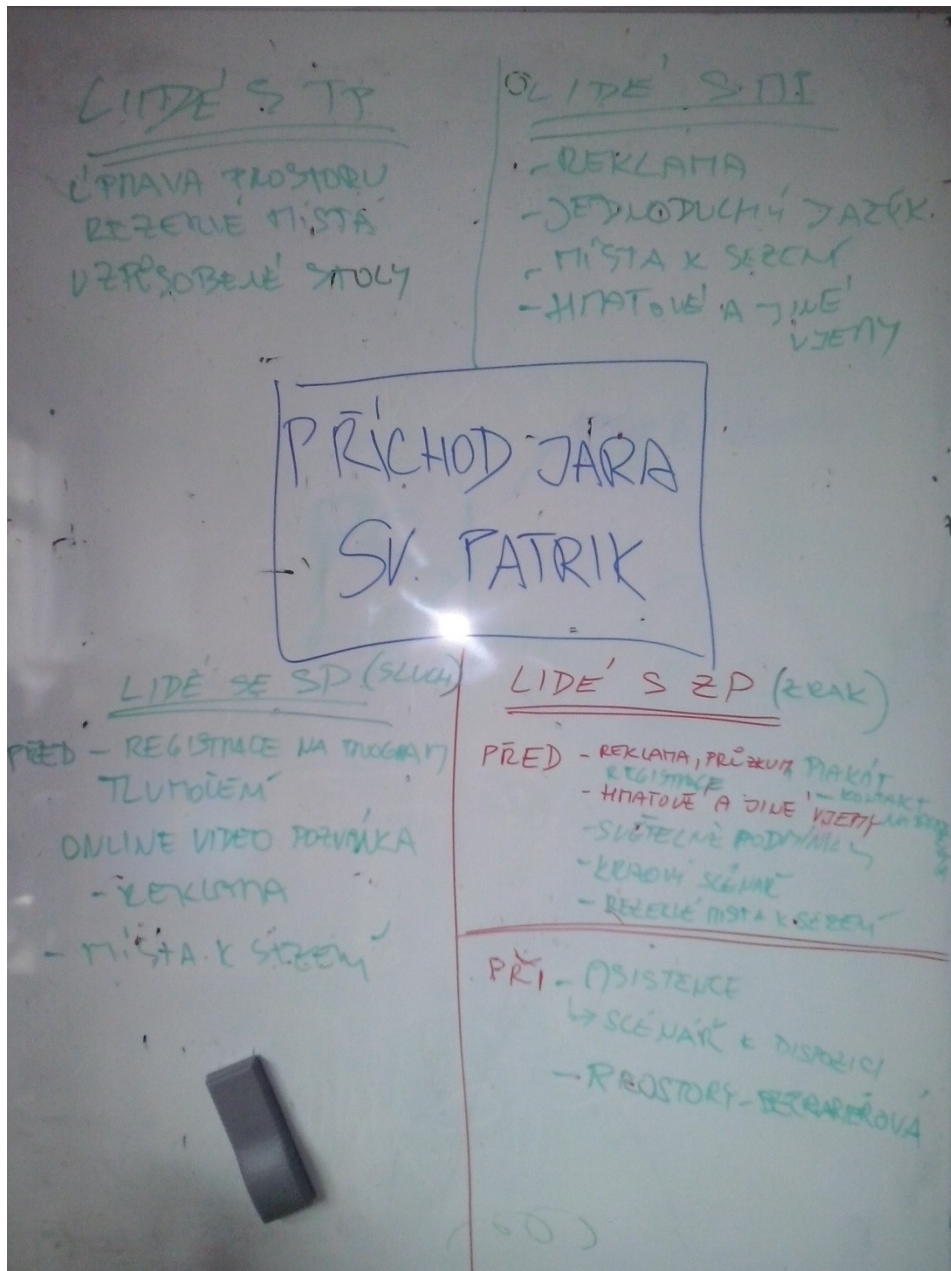 LIDÉ S TP
ÚPRAVA PROSTORU
REZERVÉ MÍSTA
UZPŮSOBENÉ STOLY
LIDÉ S MP
- REKLAMA
- JEDNODUCHÝ JAZYK
- MÍSTA K SEZENÍ
- HMATOVÉ A JINÉ
VJEMY
PŘÍCHOD JARA
SV. PATRIK
LIDÉ SE SP (SLUCH)
PŘED - REGISTRACE NA PROGRAM
TLUMOČENÍ
ONLINE VIDEO POZVÁNKA
- REKLAMA
- MÍSTA K SEZENÍ
LIDÉ S ZP (ZRAK)
PŘED - REKLAMA, PRŮZKUM, PLAKÁT
REGISTRACE - KONTAKT
- HMATOVÉ A JINÉ VJEMY
- SVĚTELNÉ PODMÍNKY
- SCÉNÁŘ
- MÍSTA K SEZENÍ
PŘI - ASISTENCE
↳ SCÉNÁŘ K DISPOZICI
- PROSTORY - BEZBARIÉROVÁ